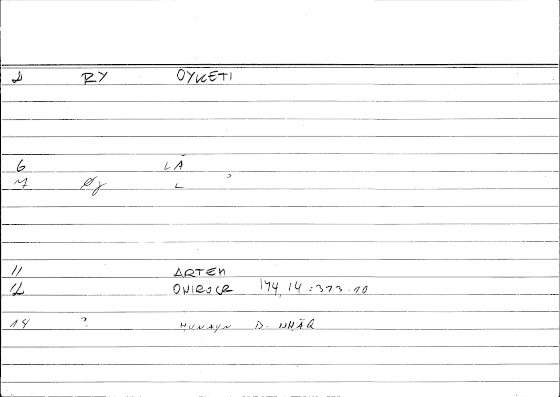 2 RY OYKETI
6 LĀ
7 Øy L
11 ARTEM
12 ONIROCR 174,14:373.10
14 ? HUNAYN B. NHĀQ